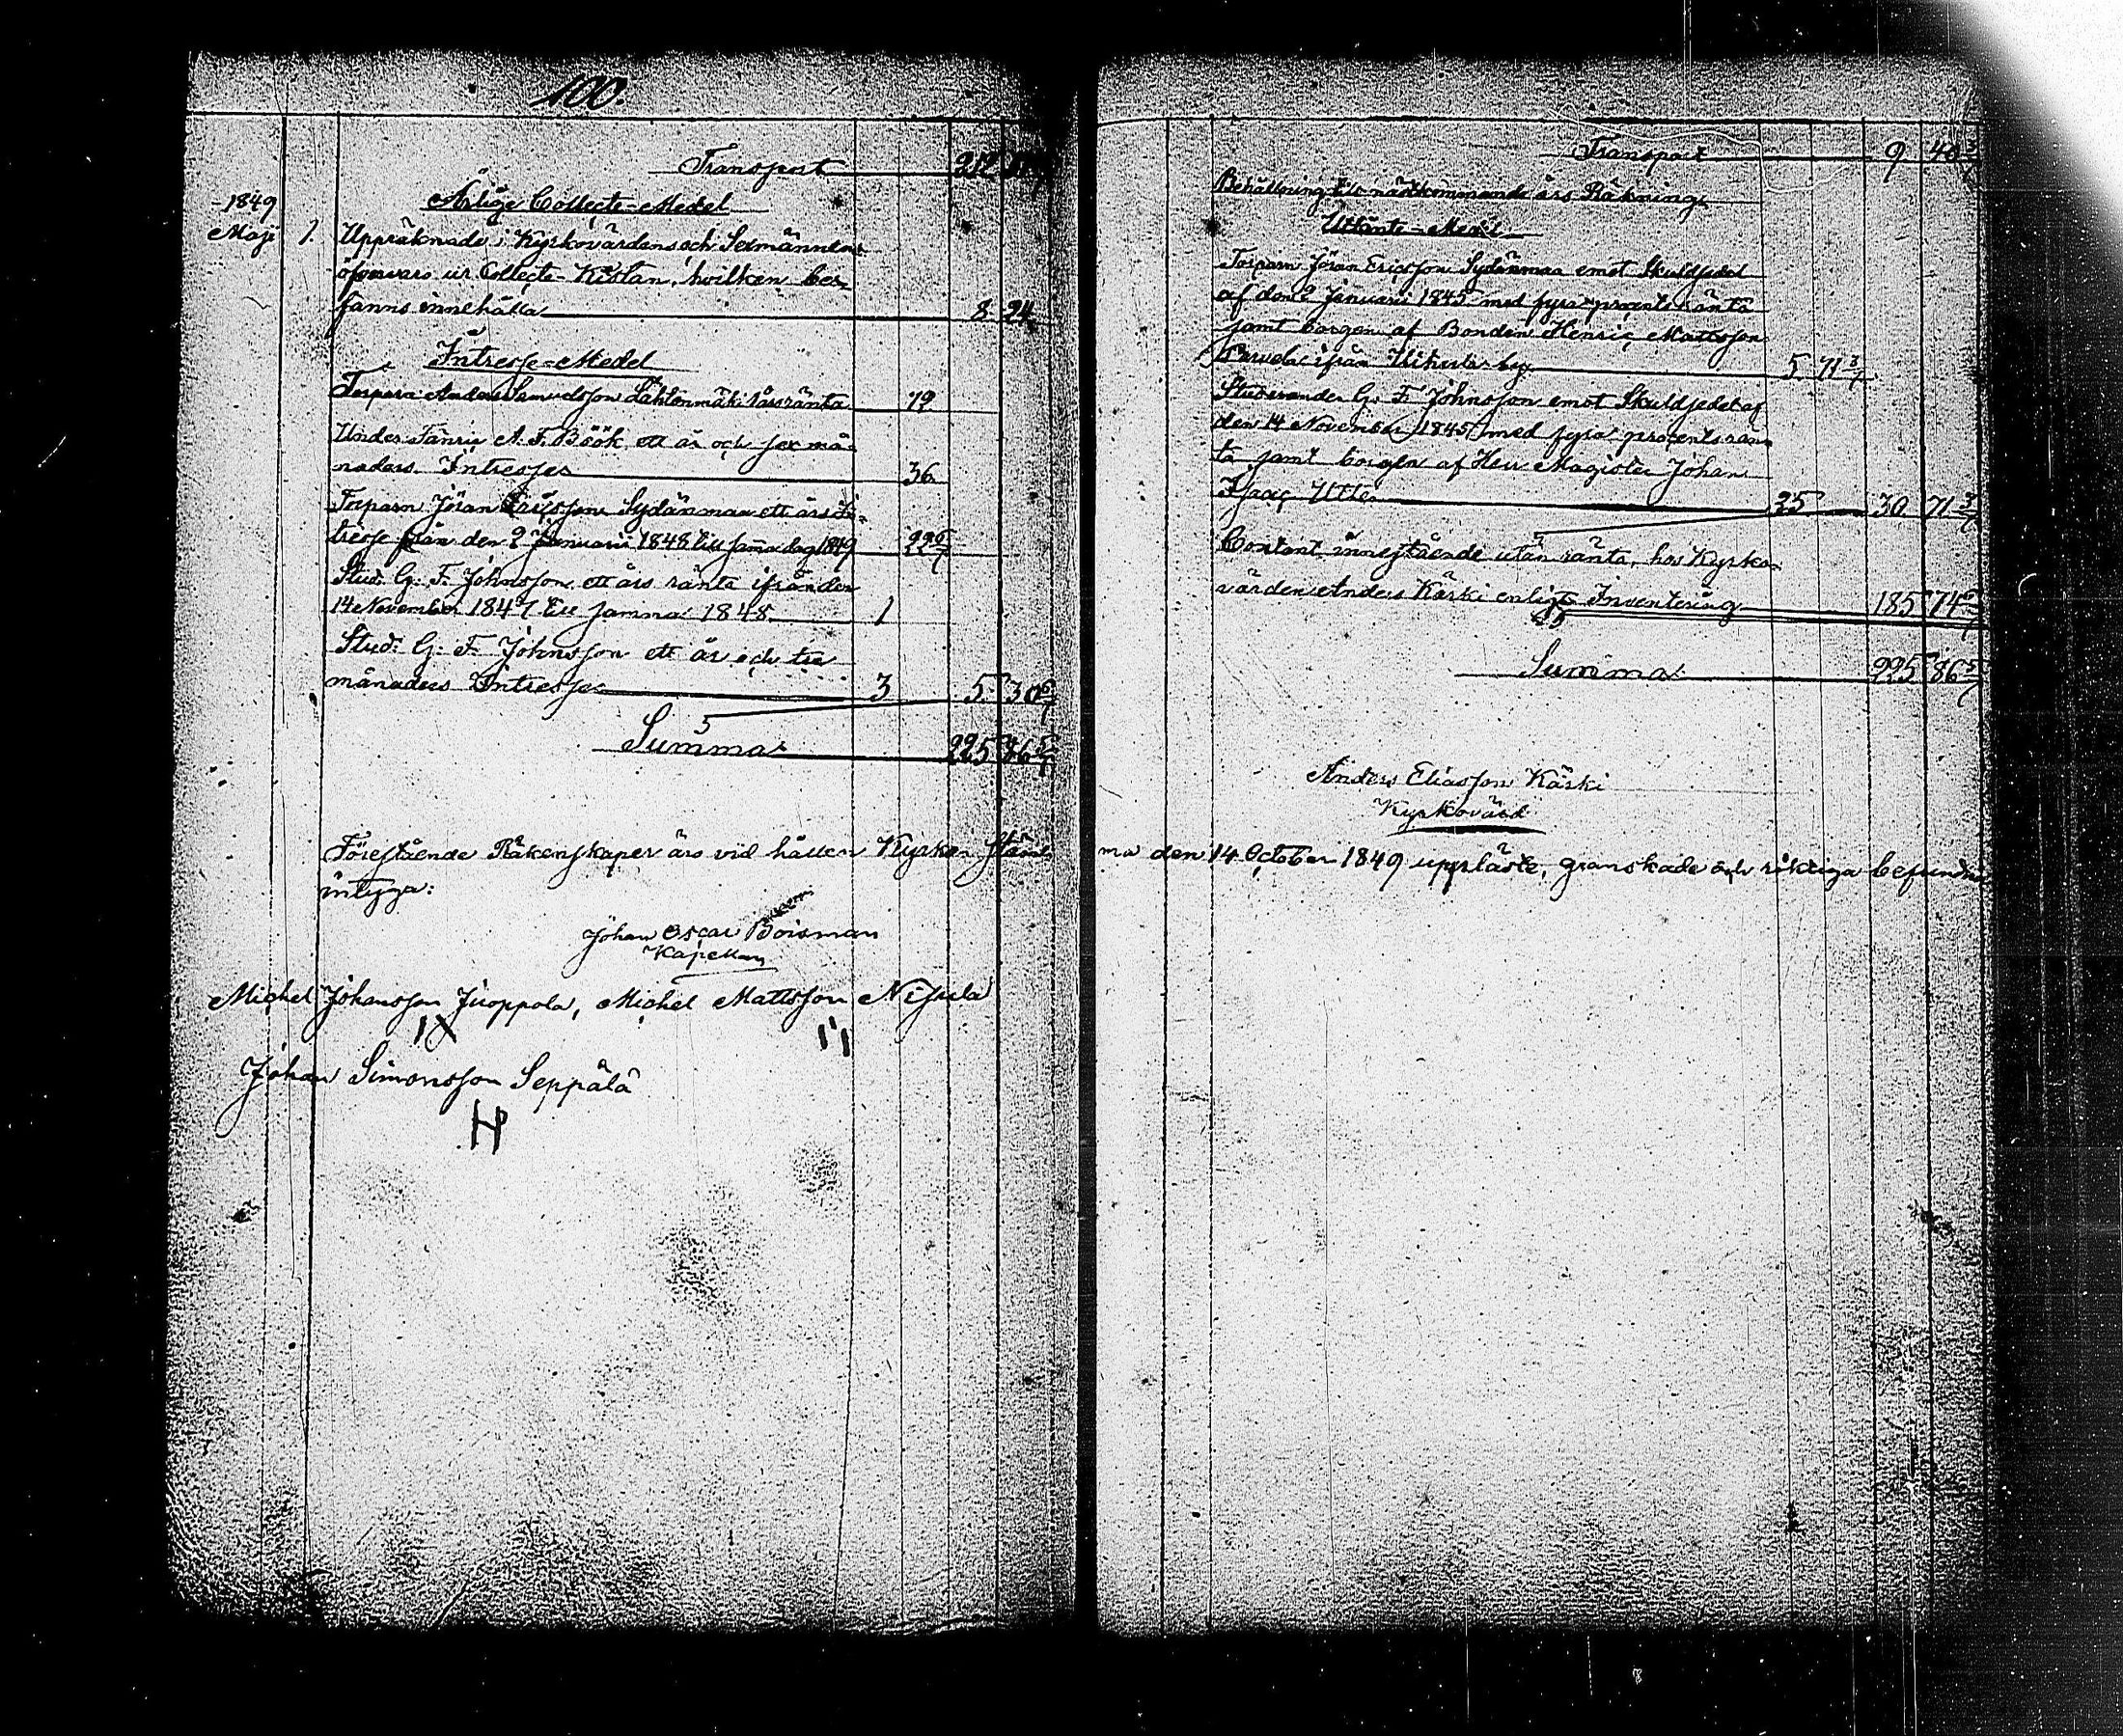 100.
Transport 212
Årlige Collecte-Medel
1849
Maji 1. Uppräknade i Kyrkovärdens och Sexmännens
öfvervaro ur Collecte-Kistan, hvilken be-
fanns innehålla 8 24
Intresse-Medel
Torparn Anders Samuelsson Lahtenmäki 1 års ränta 12
Under Fänrik A. F. Böök ett år och sex må-
naders Intresse 36
Torparn Jöran Ericsson Sydänmaa ett års In-
tresse från den 2 Januarii 1848 till samma dag 1849 22 6/7
Stud. G. F. Johnsson ett års ränta ifrån den
14 November 1847 till samma 1848 1
Stud. G. F. Johnsson ett år och tre
månaders Intresse 3 5 30 6/7
Summa 225 86 5/7
Förestående Räkenskaper äro vid hållen Kyrko stäm
intyga:
Johan Oscar Boisman
Kapellan
Michel Johansson Juoppola, Michel Mattsson Nisula
Johan Simonsson Seppälä
Transport 9 40 3/7
Behållning till nästkommande års Räkning
Utlånte-Medel
Torparn Jöran Ericsson Sydänmaa emot Skuldsedel
af den 2 Januarii 1845 med fyra procents ränta
samt borgen af Bonden Henric Mattsson
ifrån by 5 71 3/7
Studeranden G. F. Johnsson emot Skuldsedel af
den 14 November 1845 med fyra procents rän-
ta samt borgen af Herr Magister Johan
Isaac Utter 25 30 71 3/7
Contant innestående utan ränta, hos Kyrko-
värden Anders Käski enligt Inventering 185 74 6/7
Summa 225 86 5/7
Anders Eliasson Käski
Kyrkovärd
ma den 14 October 1849 uppläste, granskade och riktiga befundne